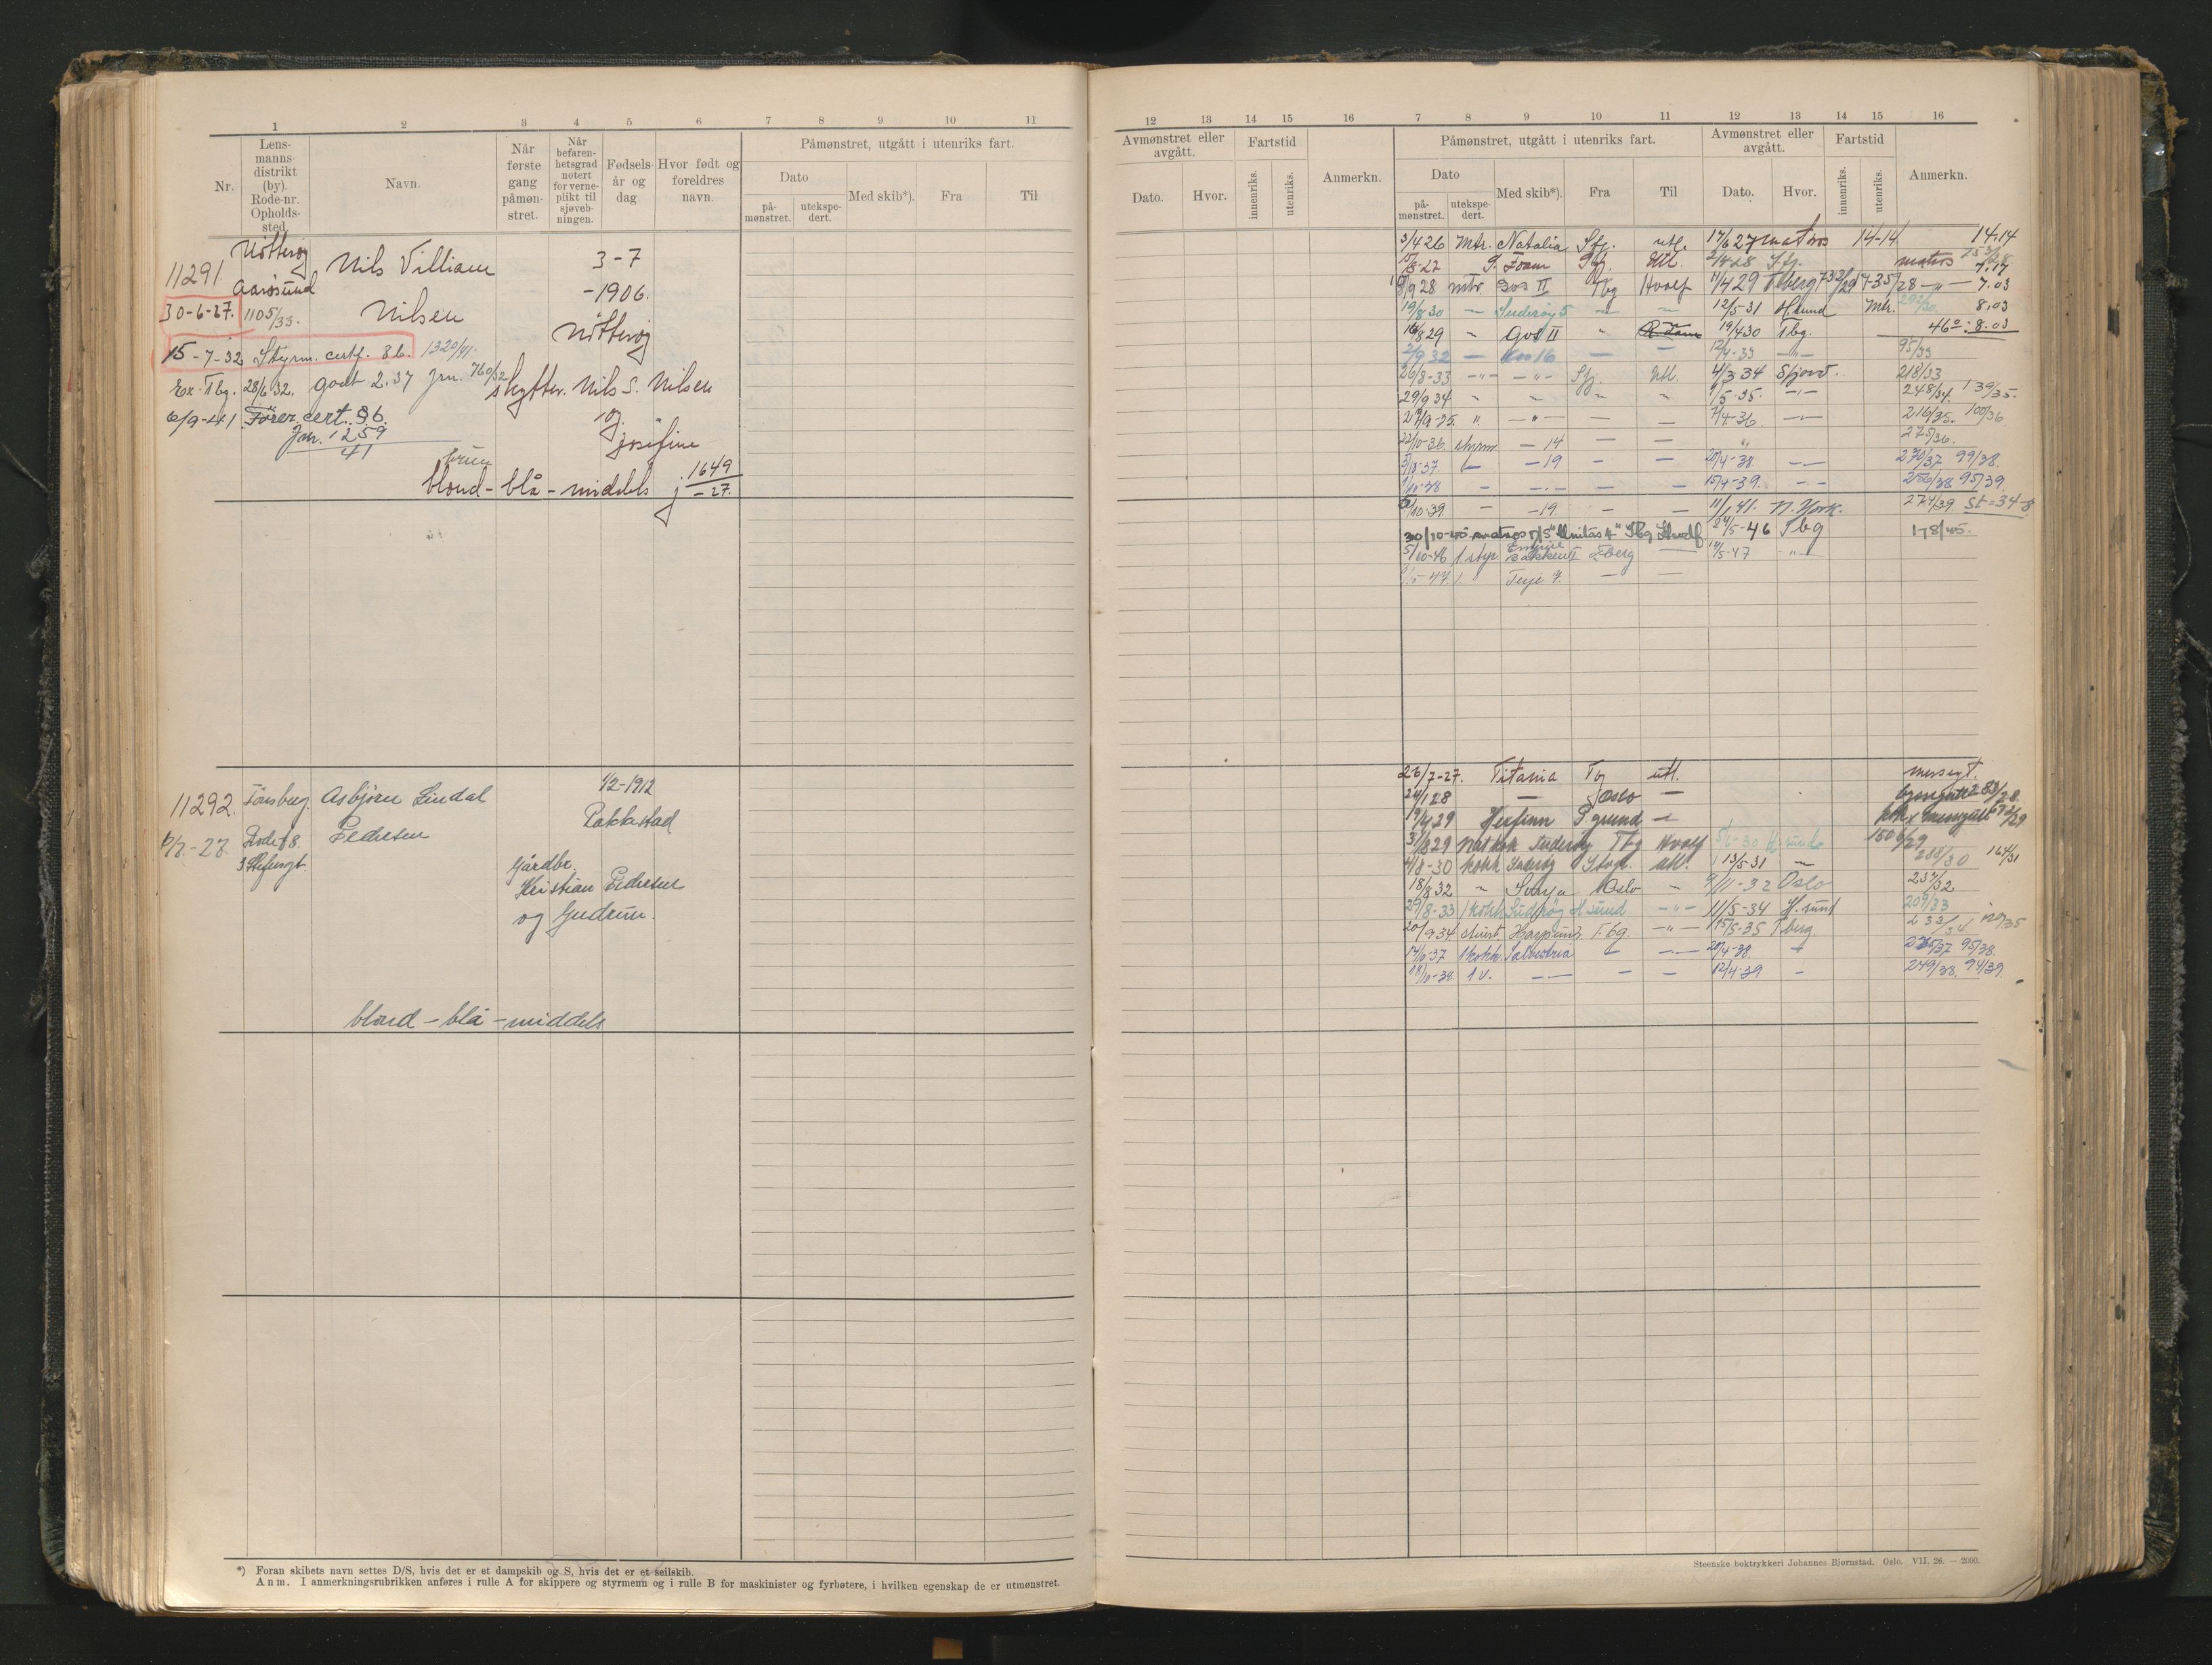 1 2 3 4 5 6 7 8 9 10 11
Nr.
Lens-
manns-
distrikt
(by).
Rode-nr.
Opholds-
sted.
Navn.
Når
første
gang
påmøn-
stret.
Når
befaren-
hetsgrad
notert
for verne-
plikt til
sjøveb-
ningen.
Fødsels-
år og
dag
Hvor født og
foreldres
navn.
Påmønstret, utgått i utenriks fart.
Dato
på-
mønstret.
utekspe-
dert.
Med skib*).
Fra
Til
11291
Nøtterøy
Aarøsund
Nils Villiam
Nilsen
3-7
-1906.
Nøtterøy
30-6-27. 1105/33.
15-7-32 Styrm. certf. 86. 1320/41.
Ex. Tbg. 28/6 32. godt 2.37 Jrn. 760/32
skytter. Nils S. Nilsen
og
Josefine
6/9-41. Fører cert. 36.
Jnr. 1259
41
brun
blond - blå - middels j. 1649
-27.
11292.
Tønsberg.
Asbjørn Lindal
Pedersen
1/2-1912
6/7.-27. Rode 18.
Gårdbr.
Kristian Pedersen
og Gudrun.
blond - blå - middels
*) Foran skibets navn settes D/S, hvis det er et dampskib og S, hvis det er et seilskib.
Anm. I anmerkningsrubrikken anføres i rulle A for skippere og styrmenn og i rulle B for maskinister og fyrbøtere, i hvilken egenskap de er utmønstret.
12 13 14 15 16 7 8 9 10 11 12 13 14 15 16
Avmønstret eller
avgått.
Dato. Hvor.
Fartstid
innenriks. utenriks.
Anmerkn.
Påmønstret, utgått i utenriks fart.
Dato
på-
mønstret.
utekspe-
dert.
Med skib*). Fra Til
Avmønstret eller
avgått.
Dato. Hvor.
Fartstid
innenriks. utenriks.
Anmerkn.
3/4 26 Mtr. Natalia Sfj. utl. 17/6 27 matros 14-14 14-14
S. Foam Sfj. Utl. 2/4-28 Sfj. matros
9/9 28 mtr. Gos II Tbg Hvalf 11/4 29 T.berg 7.03
19/8 30 - Suderøy 5 - - 12/5-31 H.sund Mtr. 292/30 8.03
16/8 29 " Gos II " R.dam 19/4 30 Tbg. 46°:8.03
2/9 32 - Kos 16 - - 12/4-33 -"- 95/33
26/8-33 -"- -"- Sfj. Utl. 4/3 34 Sfjord. 218/33
29/9 34 " " " " 1/5-35. -"- 248/34. 139/35.
27/9-35. " -"- - - 7/4-36 -"- 216/35. 100/36
22/10-36 styrm - 14 - - " 275/36.
5/10-37. - - 19 - - 20/4-38. - 270/37 99/38.
1/10-38 - -"- - - 15/4-39. -"- 256/38 95/39
6/10-39. - -19 - - 11/1 41. N. York. 274/39 St=34-8
30/10-45 matros D/S "Unitas 4" Tbg Hvalf 24/5-46 Tbg 178/45.
5/10-46 1 styr. Empire T.berg - 12/5-47 -"-
Terje 7. - -
26/7-27. Titania Tbg utl. messgt.
24/1 28 - Oslo - byssegutt 283/28.
19/4 29 Herfinn P.grund - kok
31/8 29 Suderøy Tbg Hvalf 5/6-30 H.sund 1506/29
4/8-30 kokk Suderøy utl. 13/5-31 - 288/30 164/31
18/8 32 " Svarga Oslo - 9/11-32 Oslo 237/32
29/8-33 1 kokk Sudrøy H.sund -"- 11/5-34 H.sund 209/33
20/9 34 stuert T.bg -"- 15/5-35 T.berg 233/34
14/10-37 1 kokk. Salvestria - - 20/4-38. - 265/37 95/38.
18/10-38. 1 v. - - - 12/4-39 - 249/38. 94/39.
Steenske boktrykkeri Johannes Bjørnstad. Oslo. VII. 26. — 2000.